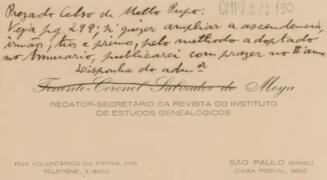 Prezado Celso de Mello Pupo:
Veja pg 299; si quizer ampliar a ascendencia,
irmãos, tios e primos, pelo methodo adoptado
no Annuario, publicarei com prazer no II anno
Disponha do adm.or
Tenente-Coronel Salvador de Moya
REDATOR-SECRETÁRIO DA REVISTA DO INSTITUTO
DE ESTUDOS GENEALÓGICOS
RUA VOLUNTÁRIOS DA PATRIA, 506
TELEFONE, 3-8403
SÃO PAULO (BRASIL)
CAIXA POSTAL, 3655